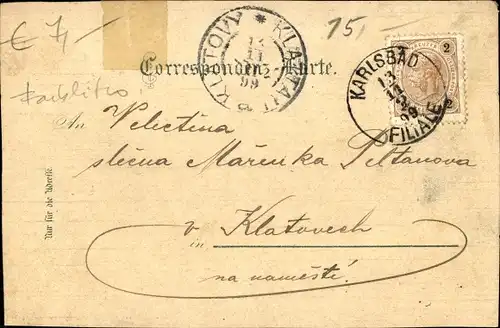 € 7,-
15,-
KLATOVY * KLATTAU
13
11
99
2
KARLSBAD
13
11
99
FILIALE
2
Correspondenz-Karte.
An Velectěna
slečna Mařenka Peltanova
v Klatovech
in
na naměstí.
Nur für die Adresse